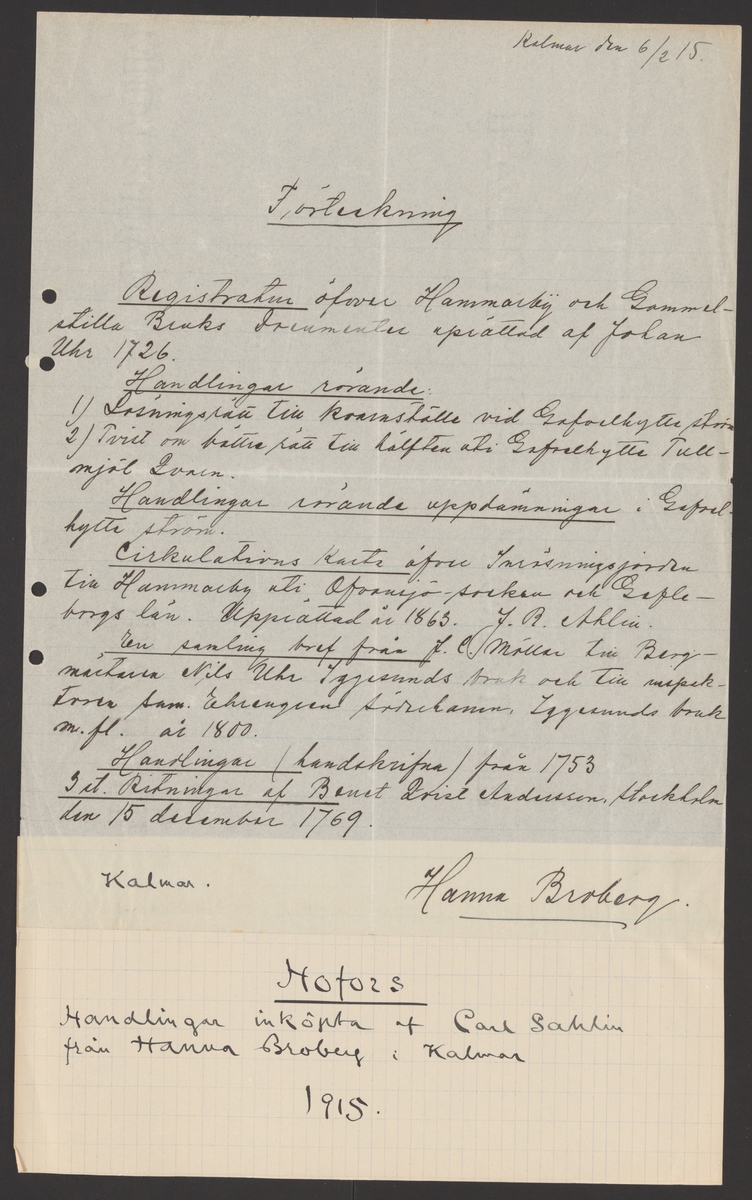 Kalmar den 6/2 15.
Förteckning
Registratur öfver Hammarbÿ och Gammel-
stilla Bruks Documenter uprättad af Johan
Uhr 1726.
Handlingar rörande:
1) Lösningsrätt till kvarnställe vid Gafvelhytte ström
2) Tvist om bättre rätt till hälften uti Gafvelhytte Tull-
mjöl Qvarn.
Handlingar rörande uppdämningar i Gafvel-
hytte ström.
Cirkulations Karta öfver Inrösningsjorden
till Hammarby uti Ofvansjö socken och Gefle-
borgs län. Upprättad år 1863. J. R. Ahlin.
En samling bref från J. C. Möller till Berg-
mästaren Nils Uhr Iggesunds bruk och till inspek-
toren Sam. Ehrengren Söderhamn, Iggesunds bruk
m. fl. år 1800.
Handlingar (handskrifna) från 1753
3 st. Ritningar af Bengt Qvist Andersson, Stockholm
den 15 december 1769.
Kalmar.
Hanna Broberg.
Hofors
Handlingar inköpta af Carl Sahlin
från Hanna Broberg i Kalmar
1915.